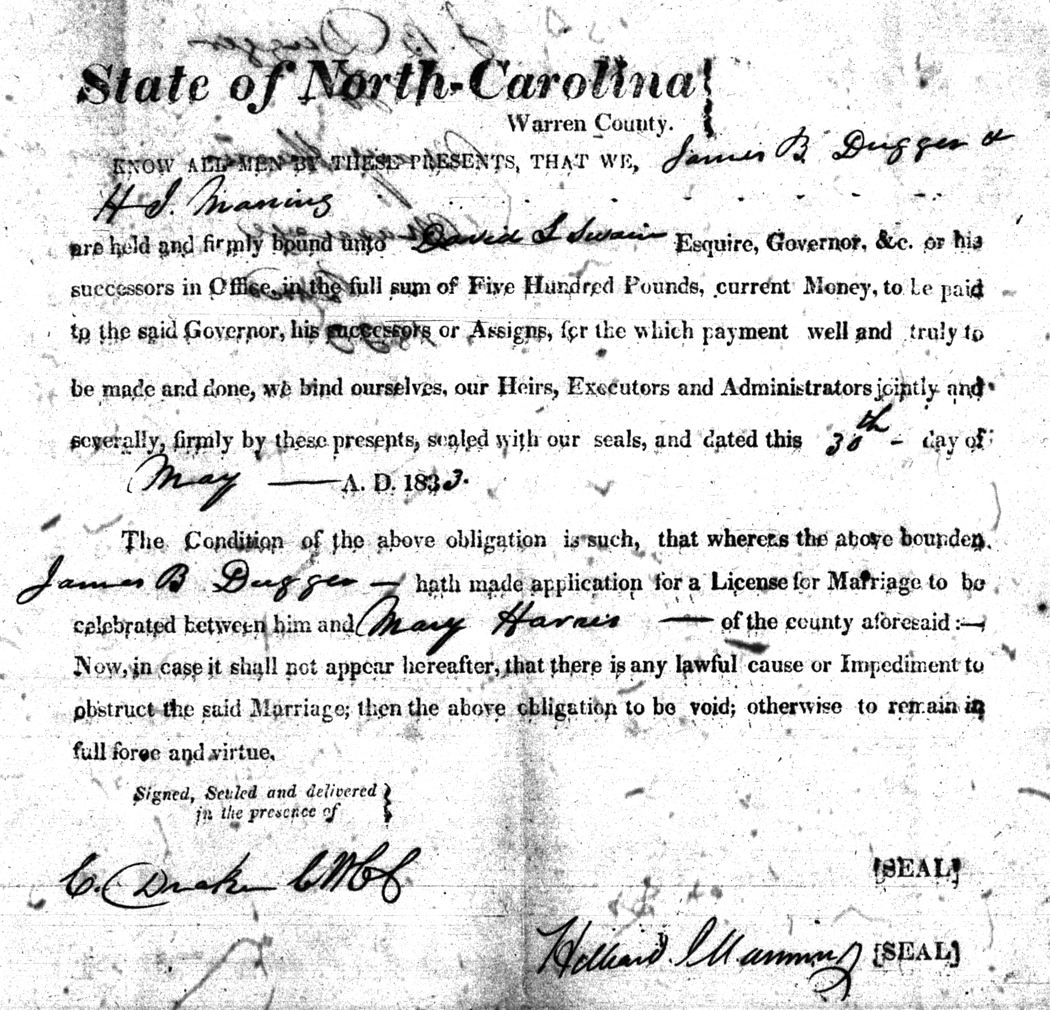 State of North-Carolina }
Warren County.
KNOW ALL MEN BY THESE PRESENTS, THAT WE, James B. Dugger &
H J. Maning
are held and firmly bound unto David L Swain Esquire, Governor, &c. or his
successors in Office, in the full sum of Five Hundred Pounds, current Money, to be paid
to the said Governor, his successors or Assigns, for the which payment well and truly to
be made and done, we bind ourselves, our Heirs, Executors and Administrators jointly and
severally, firmly by these presents, sealed with our seals, and dated this 30th - day of
May — A. D. 1833.
The Condition of the above obligation is such, that whereas the above bounden
James B Dugger — hath made application for a License for Marriage to be
celebrated between him and Mary Harris — of the county aforesaid:—
Now, in case it shall not appear hereafter, that there is any lawful cause or Impediment to
obstruct the said Marriage; then the above obligation to be void; otherwise to remain in
full force and virtue.
Signed, Sealed and delivered }
in the presence of
C. Drake CWCC
[SEAL]
J. Manning [SEAL]